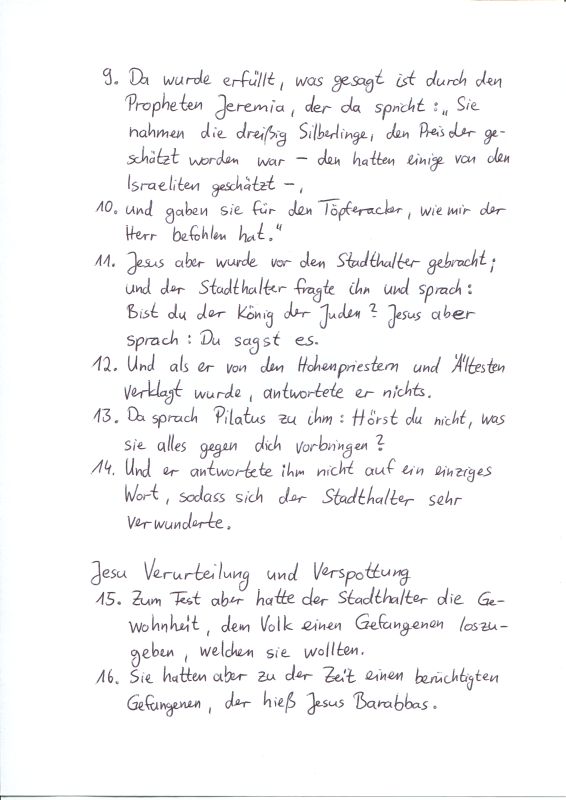 9. Da wurde erfüllt, was gesagt ist durch den
Propheten Jeremia, der da spricht: „Sie
nahmen die dreißig Silberlinge, den Preis der ge-
schätzt worden war – den hatten einige von den
Israeliten geschätzt –,
10. und gaben sie für den Töpferacker, wie mir der
Herr befohlen hat."
11. Jesus aber wurde vor den Stadthalter gebracht;
und der Stadthalter fragte ihn und sprach:
Bist du der König der Juden? Jesus aber
sprach: Du sagst es.
12. Und als er von den Hohenpriestern und Ältesten
verklagt wurde, antwortete er nichts.
13. Da sprach Pilatus zu ihm: Hörst du nicht, was
sie alles gegen dich vorbringen?
14. Und er antwortete ihm nicht auf ein einziges
Wort, sodass sich der Stadthalter sehr
verwunderte.
Jesu Verurteilung und Verspottung
15. Zum Fest aber hatte der Stadthalter die Ge-
wohnheit, dem Volk einen Gefangenen loszu-
geben, welchen sie wollten.
16. Sie hatten aber zu der Zeit einen berüchtigten
Gefangenen, der hieß Jesus Barabbas.